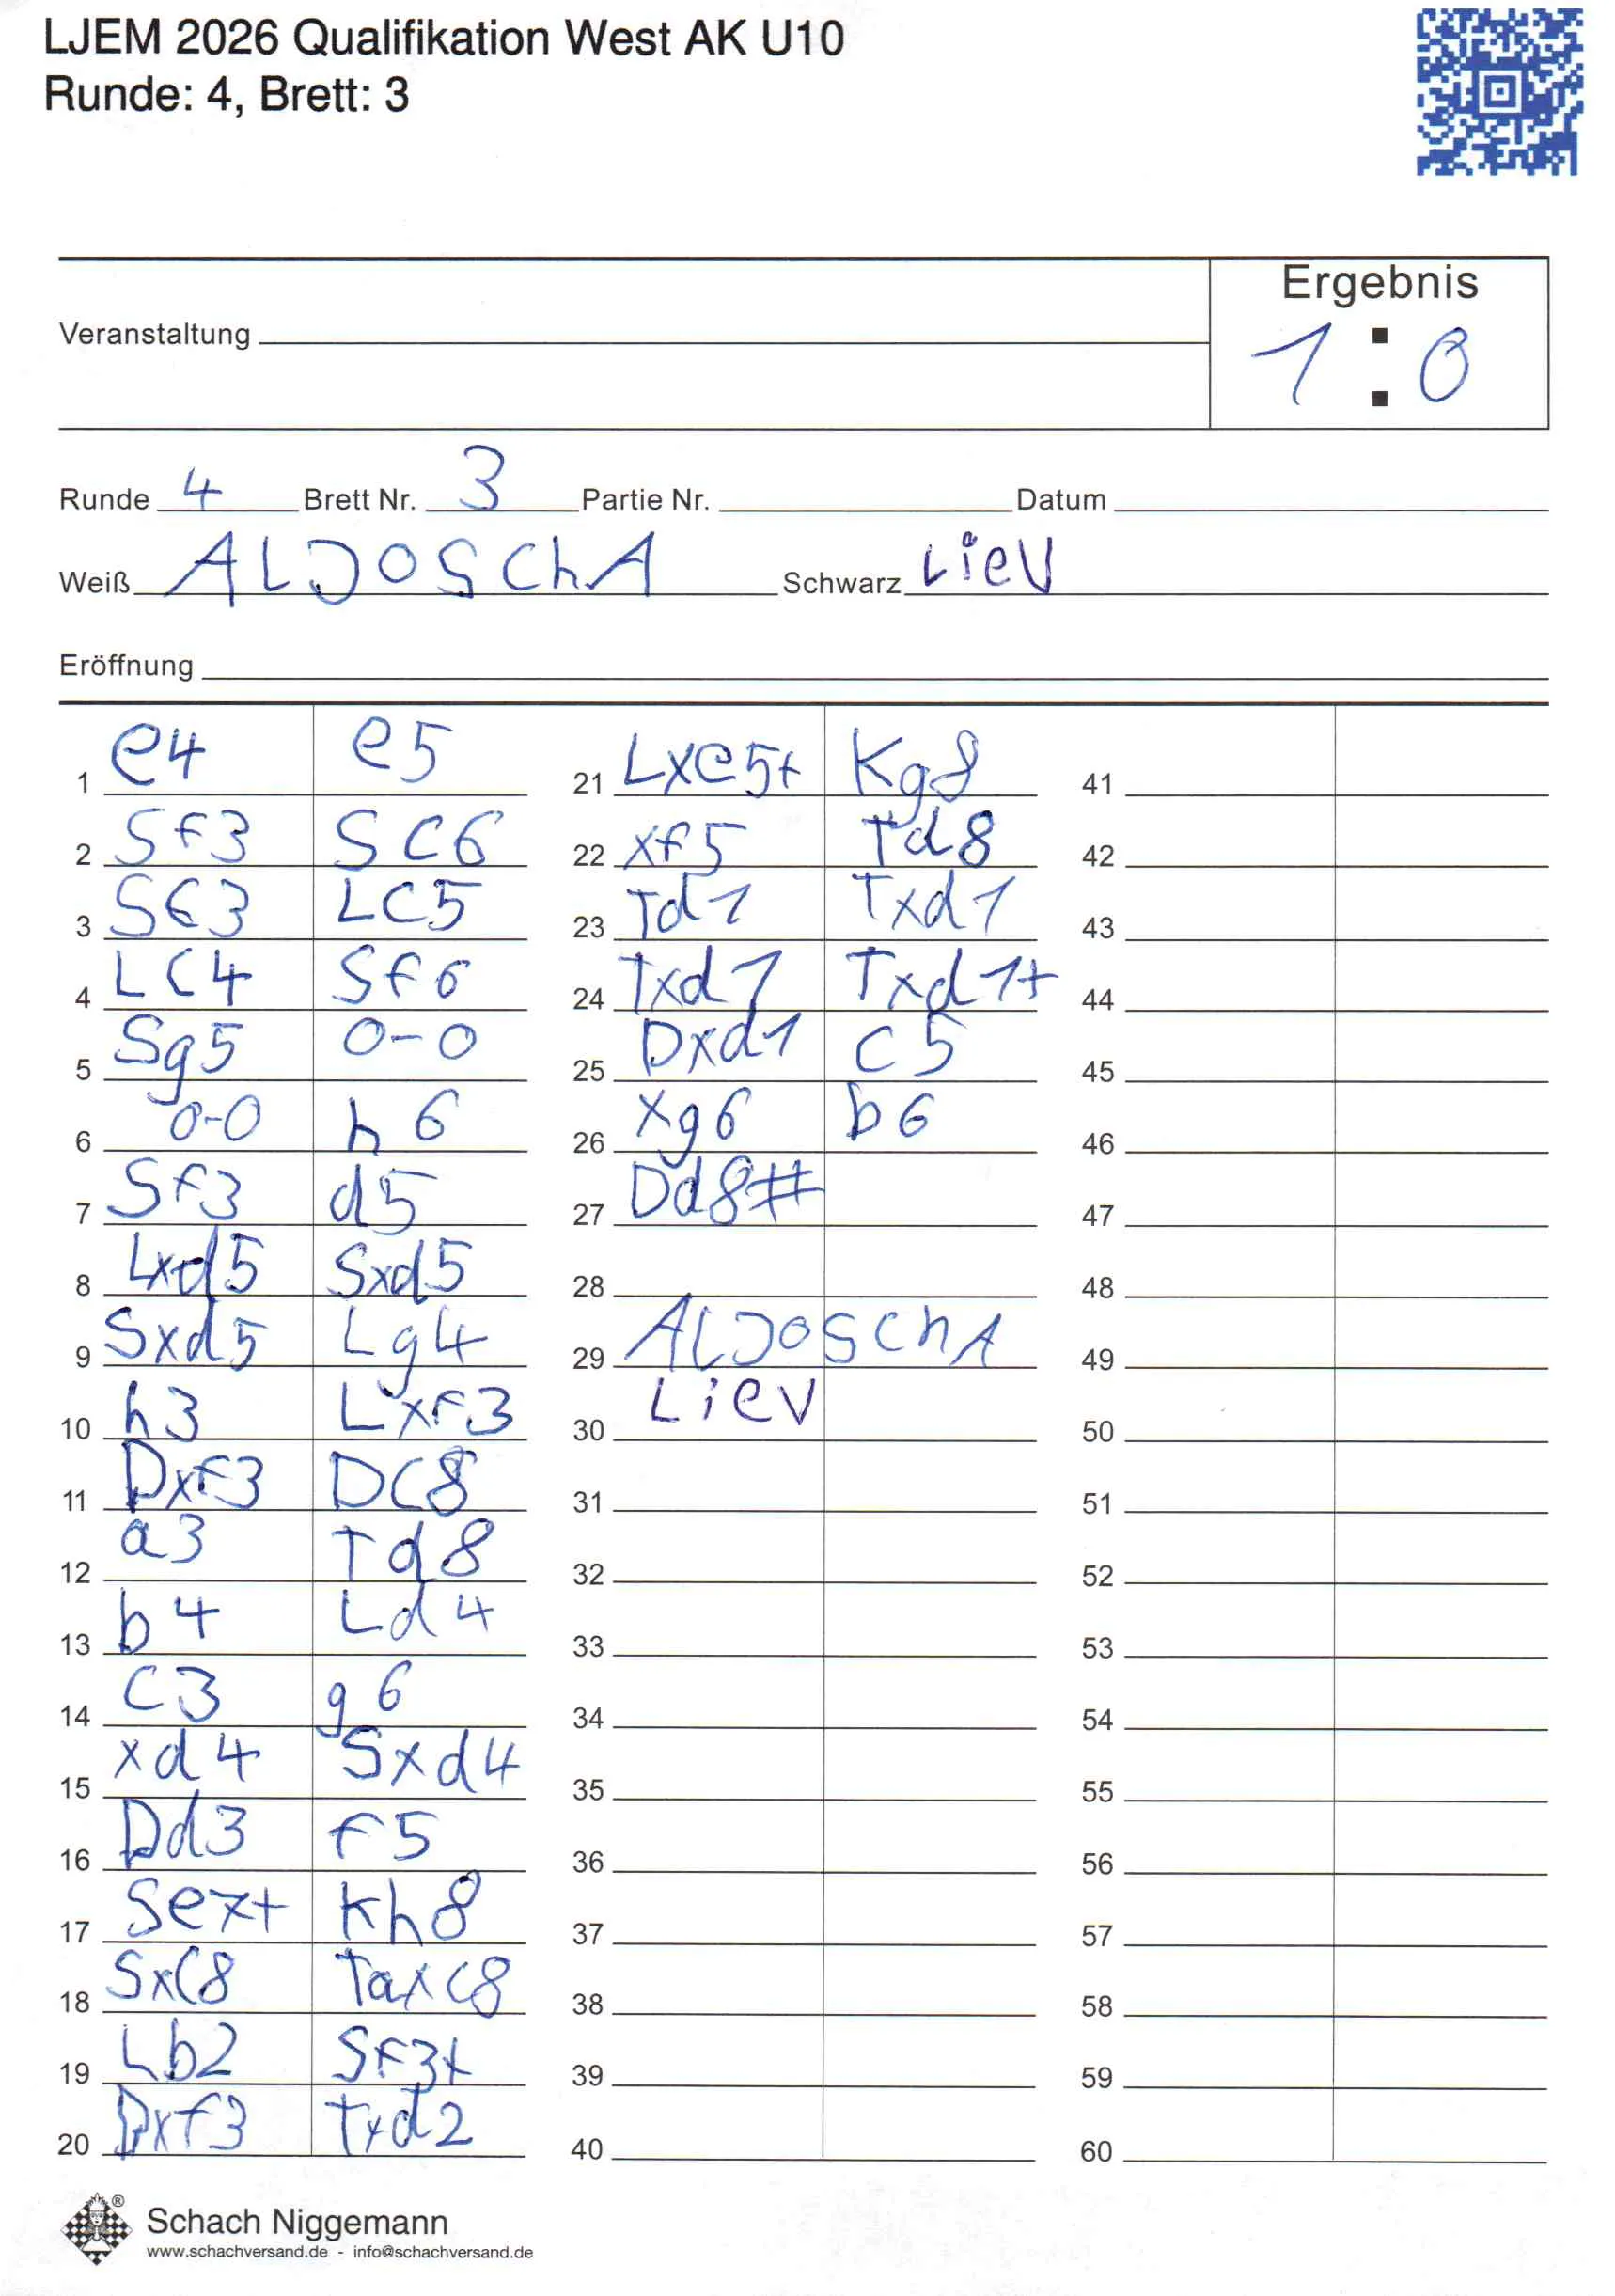 LJEM 2026 Qualifikation West AK U10
Runde: 4, Brett: 3
Ergebnis
Veranstaltung
1 : 0
Runde 4 Brett Nr. 3 Partie Nr. Datum
Weiß ALJOSChA Schwarz LieV
Eröffnung
1 e4 e5 21 Lxe5+ Kg8 41
2 Sf3 SC6 22 xf5 Td8 42
3 SC3 LC5 23 Td1 Txd1 43
4 LC4 Sf6 24 Txd1 Txd1+ 44
5 Sg5 0-0 25 Dxd1 C5 45
6 0-0 h6 26 xg6 b6 46
7 Sf3 d5 27 Dd8# 47
8 Lxd5 Sxd5 28 48
9 Sxd5 Lg4 29 ALJOSChA 49
10 h3 Lxf3 30 LieV 50
11 Dxf3 DC8 31 51
12 a3 Td8 32 52
13 b4 Ld4 33 53
14 C3 g6 34 54
15 xd4 Sxd4 35 55
16 Dd3 f5 36 56
17 Se7+ Kh8 37 57
18 SxC8 TaxC8 38 58
19 Lb2 Sf3+ 39 59
20 Dxf3 Txd2 40 60
® Schach Niggemann
www.schachversand.de - info@schachversand.de